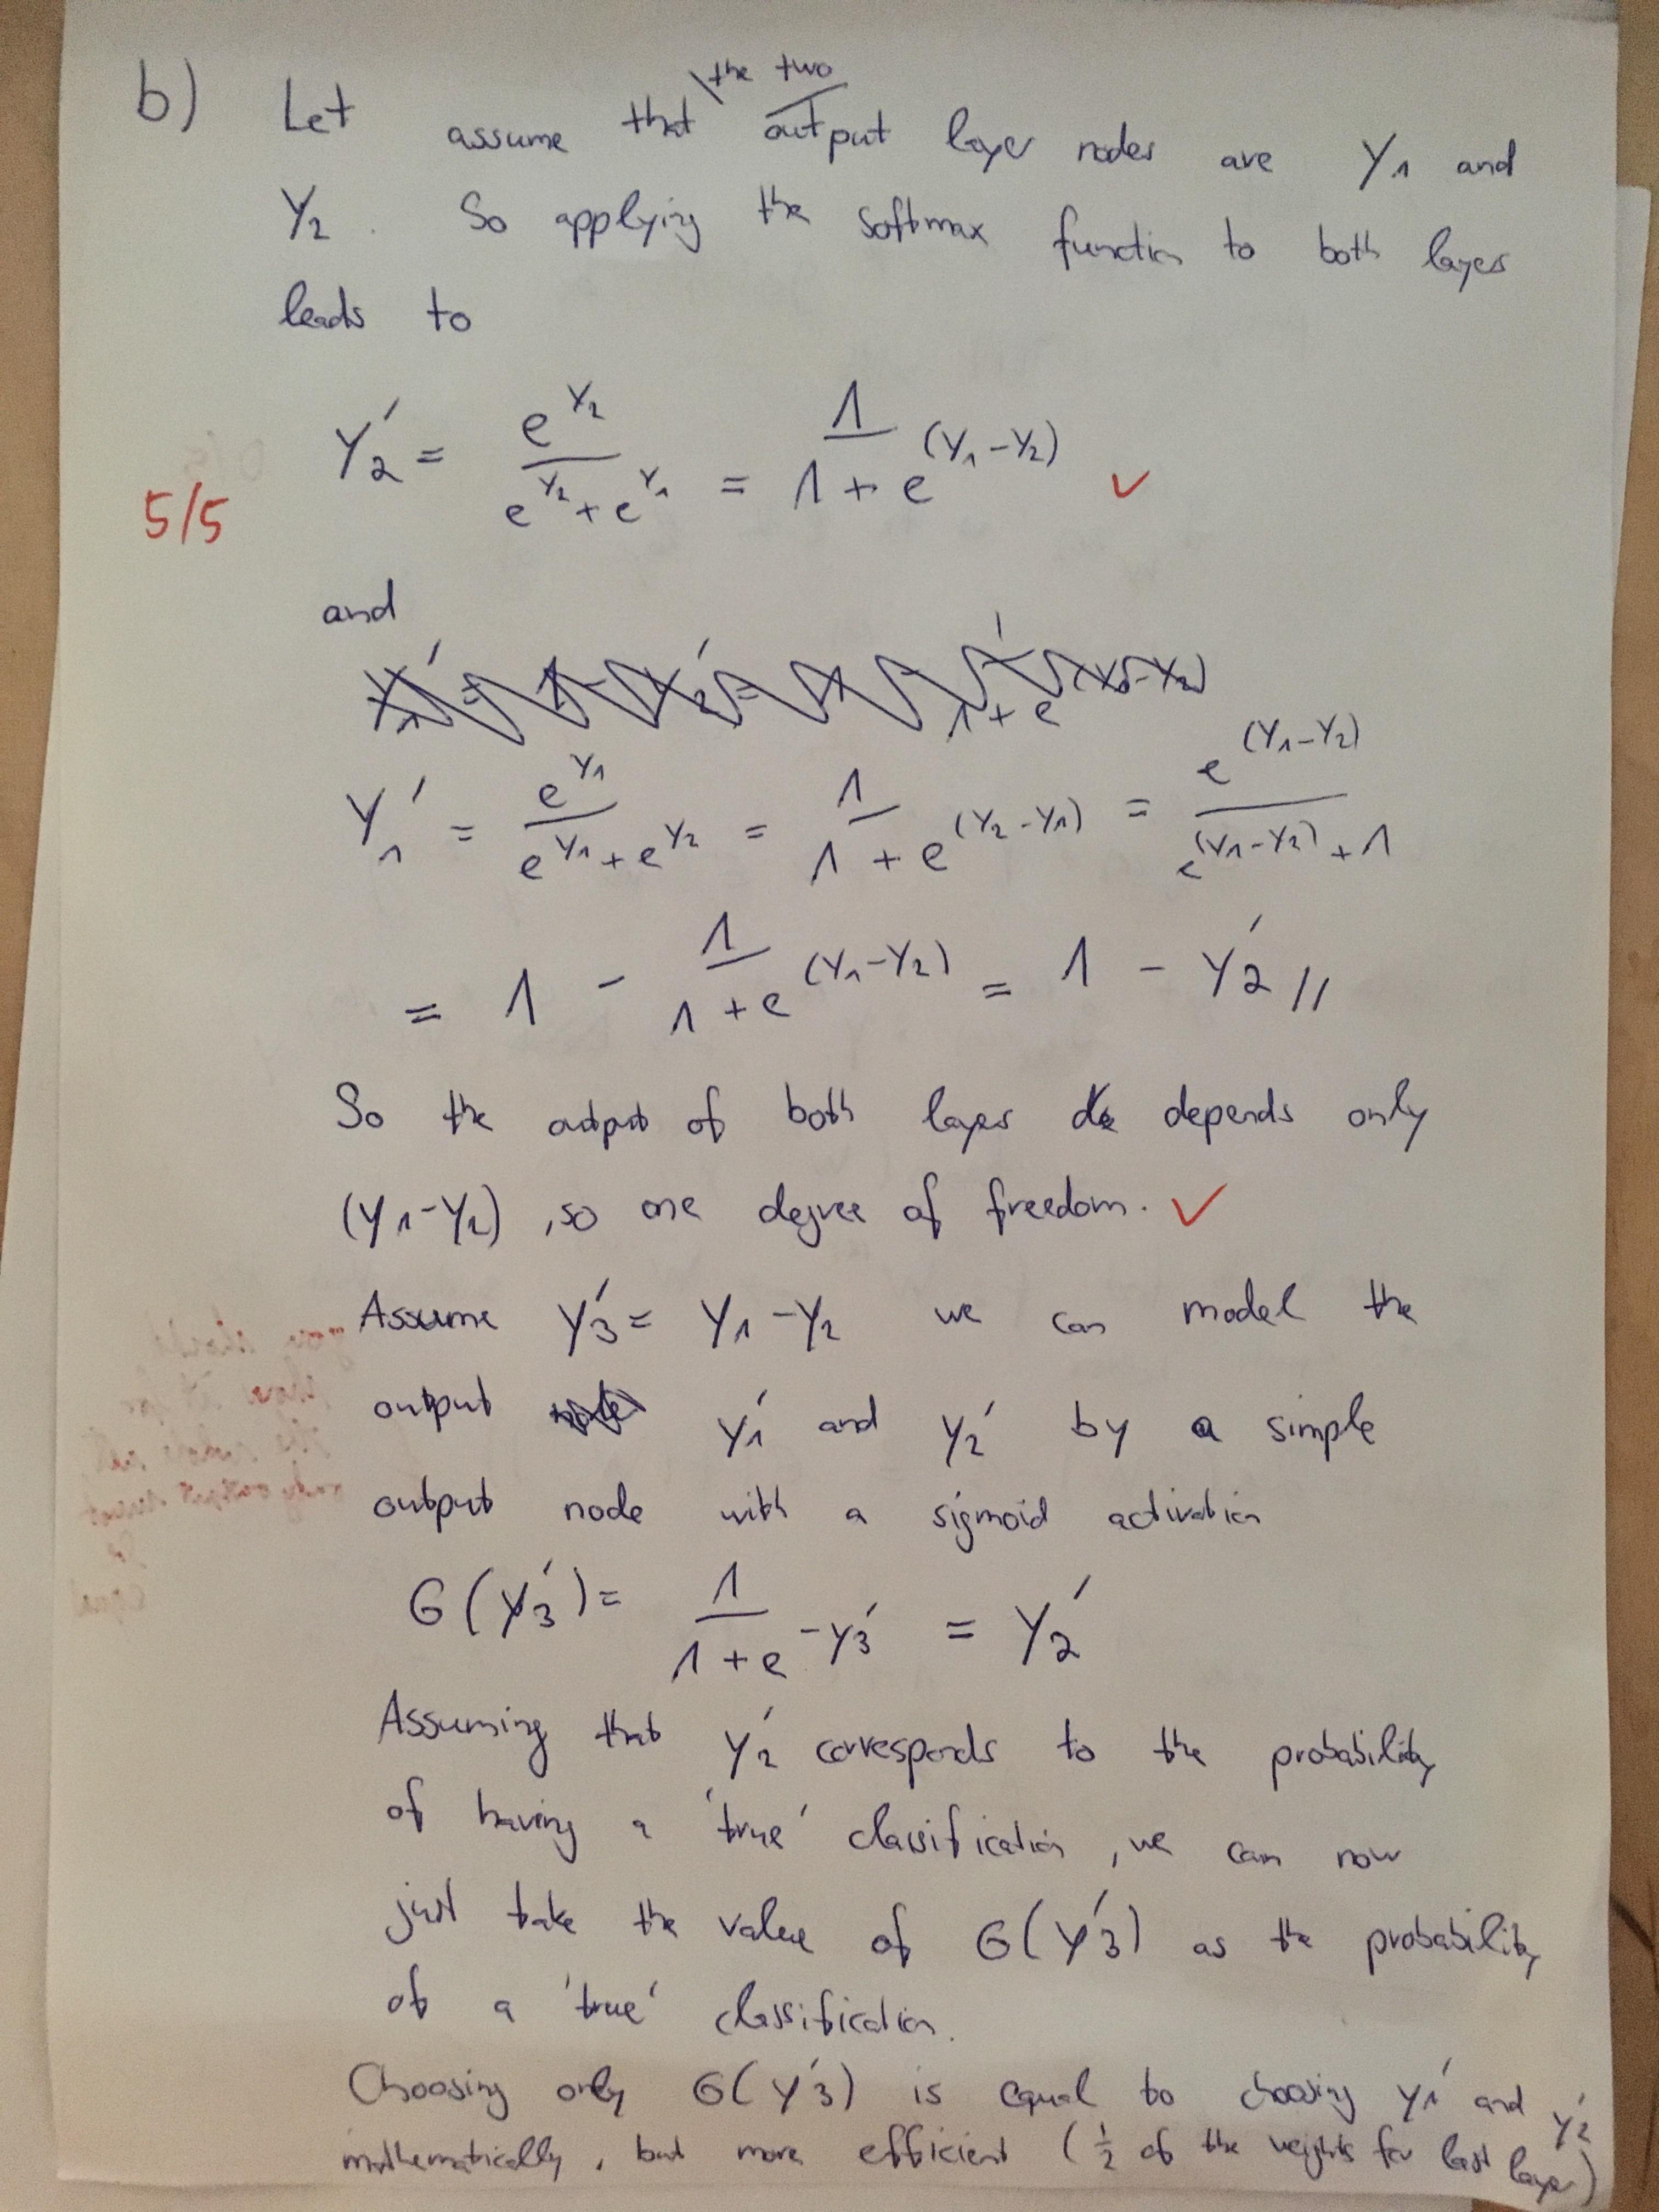 b) Let assume that the two output layer nodes are Y1 and
Y2. So applying the softmax function to both layers
leads to
Y2' = e^Y2 / (e^Y2 + e^Y1) = 1 / (1 + e^(Y1-Y2)) ✓
5/5
and
Y1' = e^Y1 / (e^Y1 + e^Y2) = 1 / (1 + e^(Y2-Y1)) = e^(Y1-Y2) / (e^(Y1-Y2) + 1)
= 1 - 1 / (1 + e^(Y1-Y2)) = 1 - Y2' //
So the output of both layer depends only
(Y1-Y2), so one degree of freedom. ✓
Assume Y3' = Y1 - Y2 we can model the
output Y1' and Y2' by a simple
output node with a sigmoid activation
G(Y3') = 1 / (1 + e^-Y3') = Y2'
Assuming that Y2' corresponds to the probability
of having a 'true' classification, we can now
just take the value of G(Y3') as the probability
of a 'true' classification.
Choosing only G(Y3') is equal to choosing Y1' and Y2'
mathematically, but more efficient (1/2 of the weights for last layer)